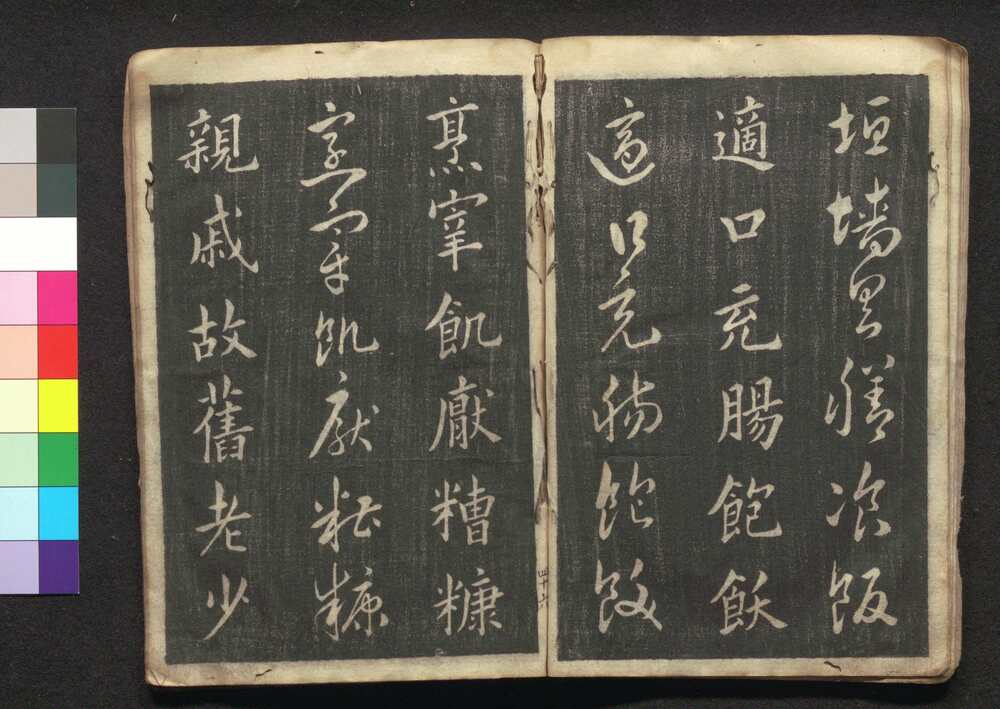 垣墻具膳飡飯
適口充腸飽飫
適口充腸飽飫
四十六
烹宰飢厭糟糠
烹宰飢厭糟糠
親戚故舊老少